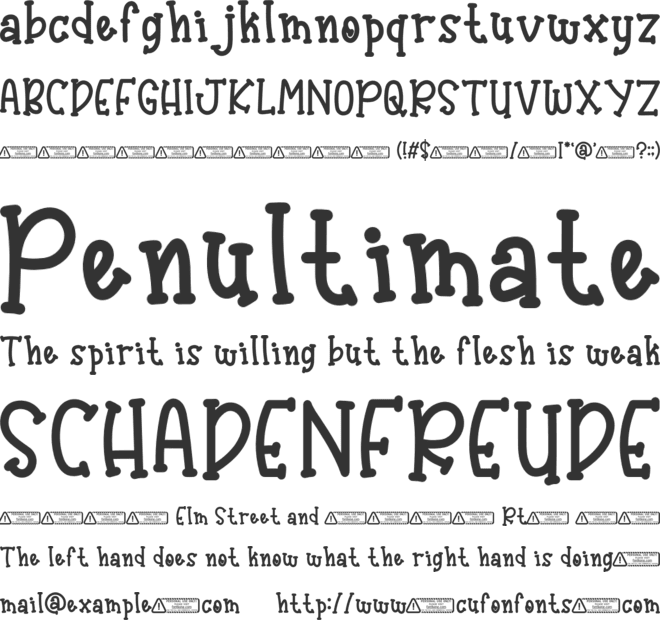 abcdefghijklmnopqrstuvwxyz
ABCDEFGHIJKLMNOPQRSTUVWXYZ
(!#$ / I*'@' ?:;)
Penultimate
The spirit is willing but the flesh is weak
SCHADENFREUDE
Elm Street and Rt
The left hand does not know what the right hand is doing
mail@example com http://www cufonfonts com